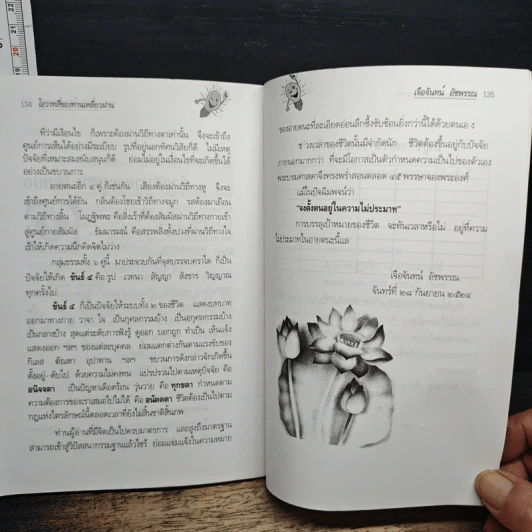 134 โอวาทสี่ของท่านเหลี่ยวฝาน
ที่ว่ามีเงื่อนไข ก็เพราะต้องผ่านวิถีทางตาเท่านั้น จึงจะเข้าถึง
ศูนย์การเห็นได้อย่างมีระเบียบ รูปที่อยู่นอกทัศนวิสัยก็ดี ไม่มีเหตุ
ปัจจัยที่เหมาะสมสนับสนุนก็ดี ย่อมไม่อยู่ในเงื่อนไขที่จะเกิดขึ้นได้
อย่างเป็นขบวนการ
อายตนะอีก ๔ คู่ ก็เช่นกัน เสียงต้องผ่านวิถีทางหู จึงจะ
เข้าถึงศูนย์การได้ยิน กลิ่นต้องใช้เยวิถีทางจมูก รสต้องมาเยือน
ตามวิถีทางลิ้น โผฏฐัพพะ คือสิ่งเร้าที่ต้องสัมผัสผ่านวิถีทางกายเข้า
สู่ศูนย์กายสัมผัส ธัมมารมณ์ คือสรรพสิ่งทั้งปวงที่ผ่านวิถีทางใจ
เร้าให้เกิดความนึกคิดจิตไม่ว่าง
กลุ่มธรรมทั้ง ๖ คู่นี้ มาประจวบกันที่จุดบรรจบคราใด ก็เป็น
ปัจจัยให้เกิด ขันธ์ ๕ คือ รูป เวทนา สัญญา สังขาร วิญญาณ
ทุกครั้งไป
ขันธ์ ๕ ก็เป็นปัจจัยให้ระบบทั้ง ๒ ของชีวิต แสดงบทบาท
ออกมาทางกาย วาจา ใจ เป็นกุศลกรรมบ้าง เป็นอกุศลกรรมบ้าง
เป็นกลางบ้าง สุดแต่ระดับการพังรู้ ดูออก บอกถูก ทำเป็น เห็นแจ้ง
แสดงออก ฯลฯ ของแต่ละบุคคล ย่อมแตกต่างกันตามแรงขับของ
กิเลส ตัณหา อุปาทาน ฯลฯ ขบวนการดังกล่าวจักเกิดขึ้น
ตั้งอยู่-ดับไป ด้วยความไม่คงทน แปรปรวนไปตามเหตุปัจจัย คือ
อนิจจตา เป็นปัญหาเดือดร้อน วุ่นวาย คือ ทุกขตา กำหนดตาม
ความต้องการของเราเสมอไปไม่ได้ คือ อนัตตตา ชีวิตต้องเป็นไปตาม
กฎแห่งไตรลักษณ์นี้ตลอดเวลาที่ยังไม่สิ้นชาติสิ้นภพ
ท่านผู้อ่านที่มีจิตเป็นไปครบมาตรการ และสูงถึงมาตรฐาน
สามารถเข้าสู่วิปัสสนากรรมฐานแล้วไซร้ ย่อมแจ่มแจ้งในความหมาย
เจือจันทน์ อัชพรรณ 135
ของอายตนะที่ละเอียดอ่อนลึกซึ้งซับซ้อนยิ่งกว่านี้ได้ด้วยตนเอง
ช่วงเวลาของชีวิตนั้นมีจำกัดนัก ชีวิตต้องขึ้นอยู่กับปัจจัย
ภายนอกมากกว่า ที่จะมีโอกาสเป็นตัวกำหนดความเป็นไปของตัวเอง
พระบรมศาสดาจึงทรงพร่ำสอนตลอด ๔๕ พรรษาของพระองค์
แม้ในปัจฉิมพจน์ว่า
"จงตั้งตนอยู่ในความไม่ประมาท"
การบรรลุเป้าหมายของชีวิต จะทันเวลาหรือไม่ อยู่ที่ความ
ไม่ประมาทในอายตนะนี้แล
เจือจันทน์ อัชพรรณ
จันทร์ที่ ๒๘ กันยายน ๒๕๒๔